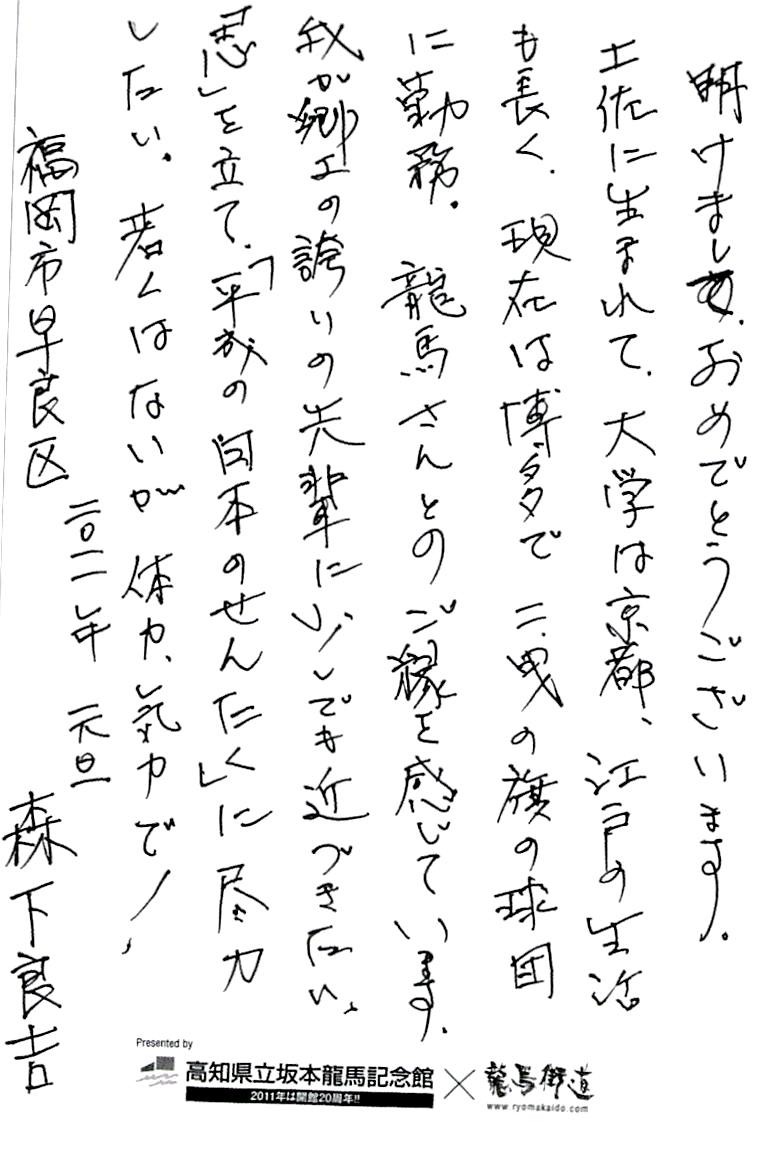 明けまして、おめでとうございます。
土佐に生まれて、大学は京都、江戸の生活
も長く、現在は博多で二曳の旗の球団
に勤務。龍馬さんとのご縁を感じています。
我が郷土の誇りの先輩に少しでも近づきたい。
志」を立て、「平成の日本のせんたく」に尽力
したい。若くはないが体力、気力で!
二〇一一年 元旦
福岡市早良区 森下良吉
Presented by
高知県立坂本龍馬記念館 × 龍馬街道
2011年は開館20周年!!
www.ryomakaido.com